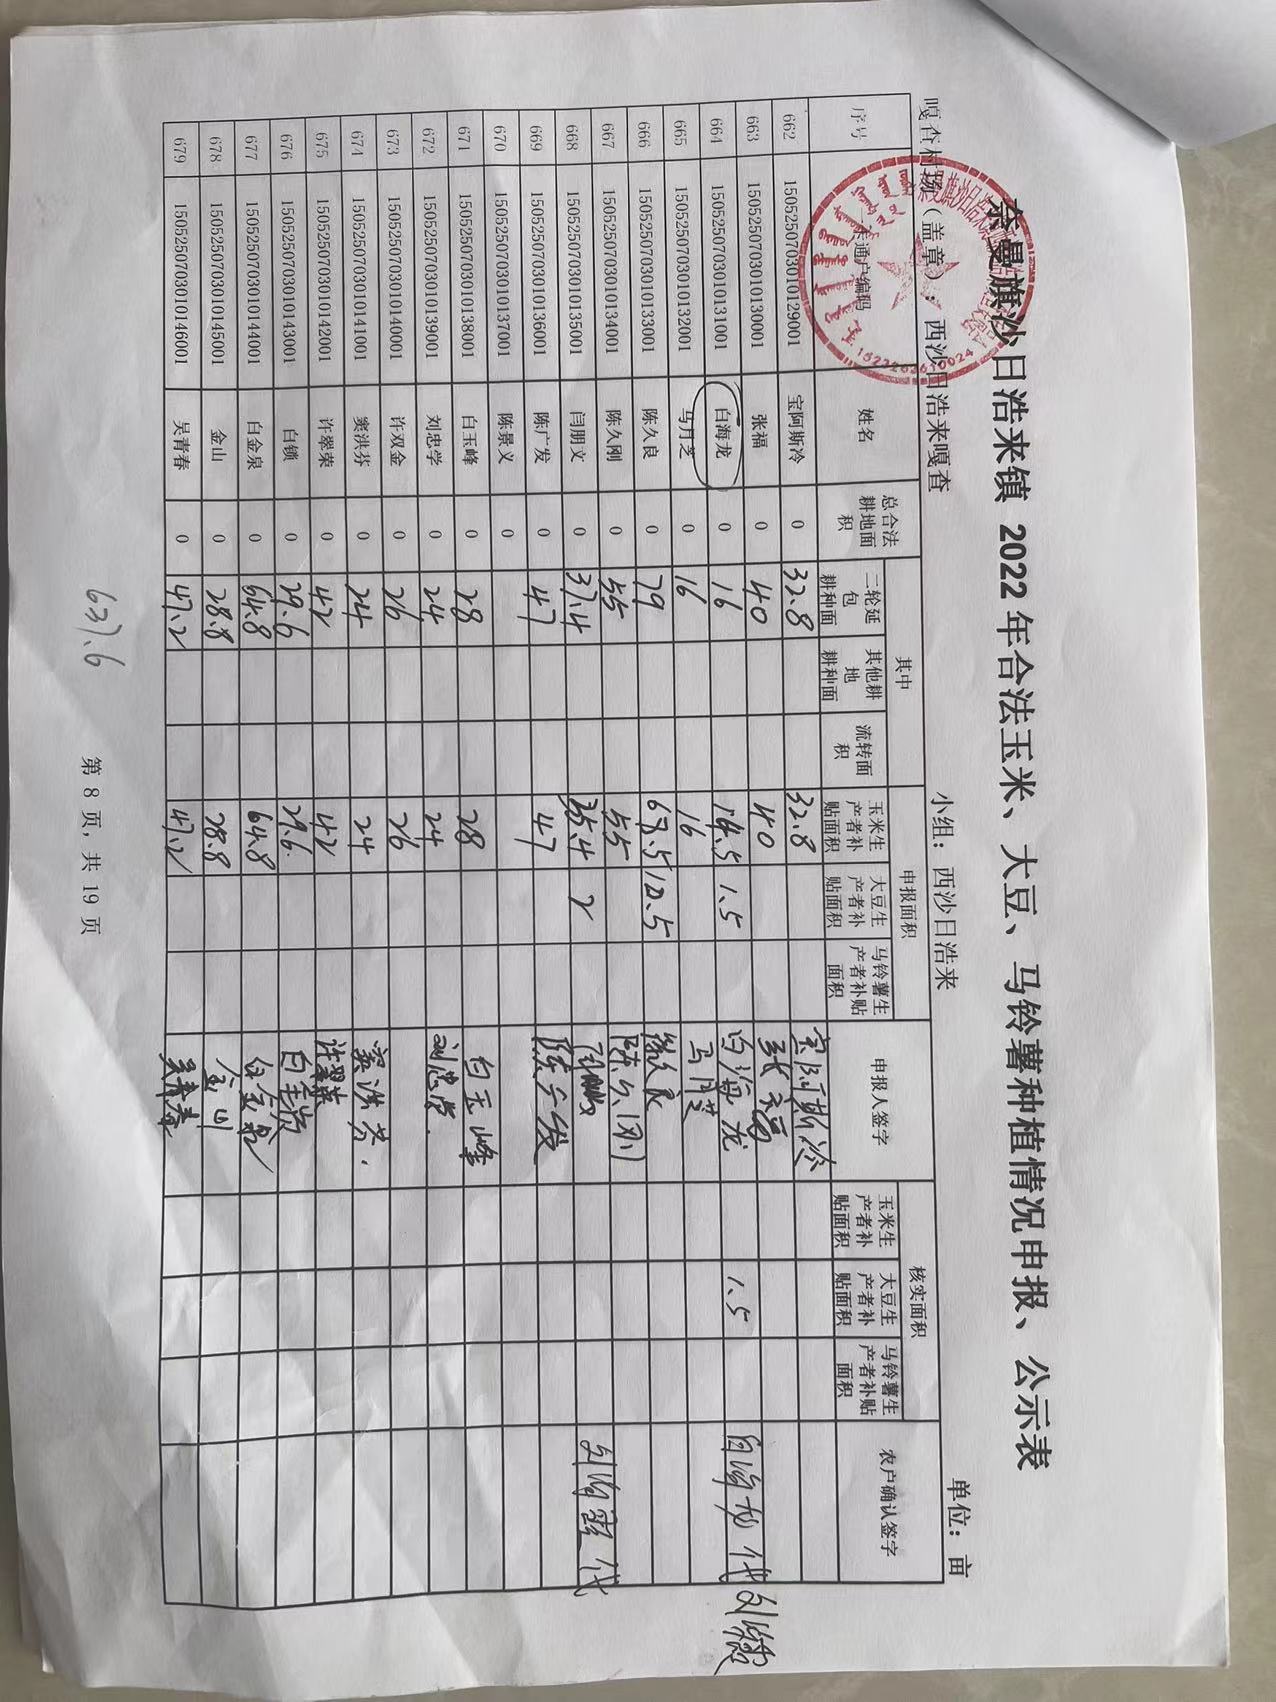 奈曼旗沙日浩来镇 2022 年合法玉米、大豆、马铃薯种植情况申报、公示表
嘎查村场（盖章）：西沙日浩来嘎查 小组：西沙日浩来 单位：亩
序号 一卡通户编码 姓名 总合法耕地面积 其中 申报面积 申报人签字 核实面积 农户确认签字
二轮延包耕种面 其他耕地耕种面 流转面积 玉米生产者补贴面积 大豆生产者补贴面积 马铃薯生产者补贴面积 玉米生产者补贴面积 大豆生产者补贴面积 马铃薯生产者补贴面积
662 150525070301012​9001 宝阿斯冷 0 32.8 32.8 宝阿斯冷
663 1505250703010130001 张福 0 40 40 张福
664 1505250703010131001 白海龙 0 16 14.5 1.5 白海龙 1.5 白海龙 代
665 1505250703010132001 马月芝 0 16 16 马月芝
666 1505250703010133001 陈久良 0 79 陈久良
667 1505250703010134001 陈久刚 0 55 55 陈久刚
668 1505250703010135001 闫朋文 0 37.4 35.4 2 代
669 1505250703010136001 陈广发 0 47 47 陈广发
670 1505250703010137001 陈景义 0
671 1505250703010138001 白玉峰 0 28 28 白玉峰
672 1505250703010139001 刘忠学 0 24 24 刘忠学
673 1505250703010140001 许双金 0 26 26
674 1505250703010141001 窦洪芬 0 24 24 窦洪芬
675 1505250703010142001 许翠荣 0 42 42 许翠荣
676 1505250703010143001 白锁 0 29.6 29.6 白锁
677 1505250703010144001 白金泉 0 64.8 64.8 白金泉
678 1505250703010145001 金山 0 28.8 28.8 金山
679 1505250703010146001 吴青春 0 47.2 47.2 吴青春
637.6
第 8 页，共 19 页
1522262610024